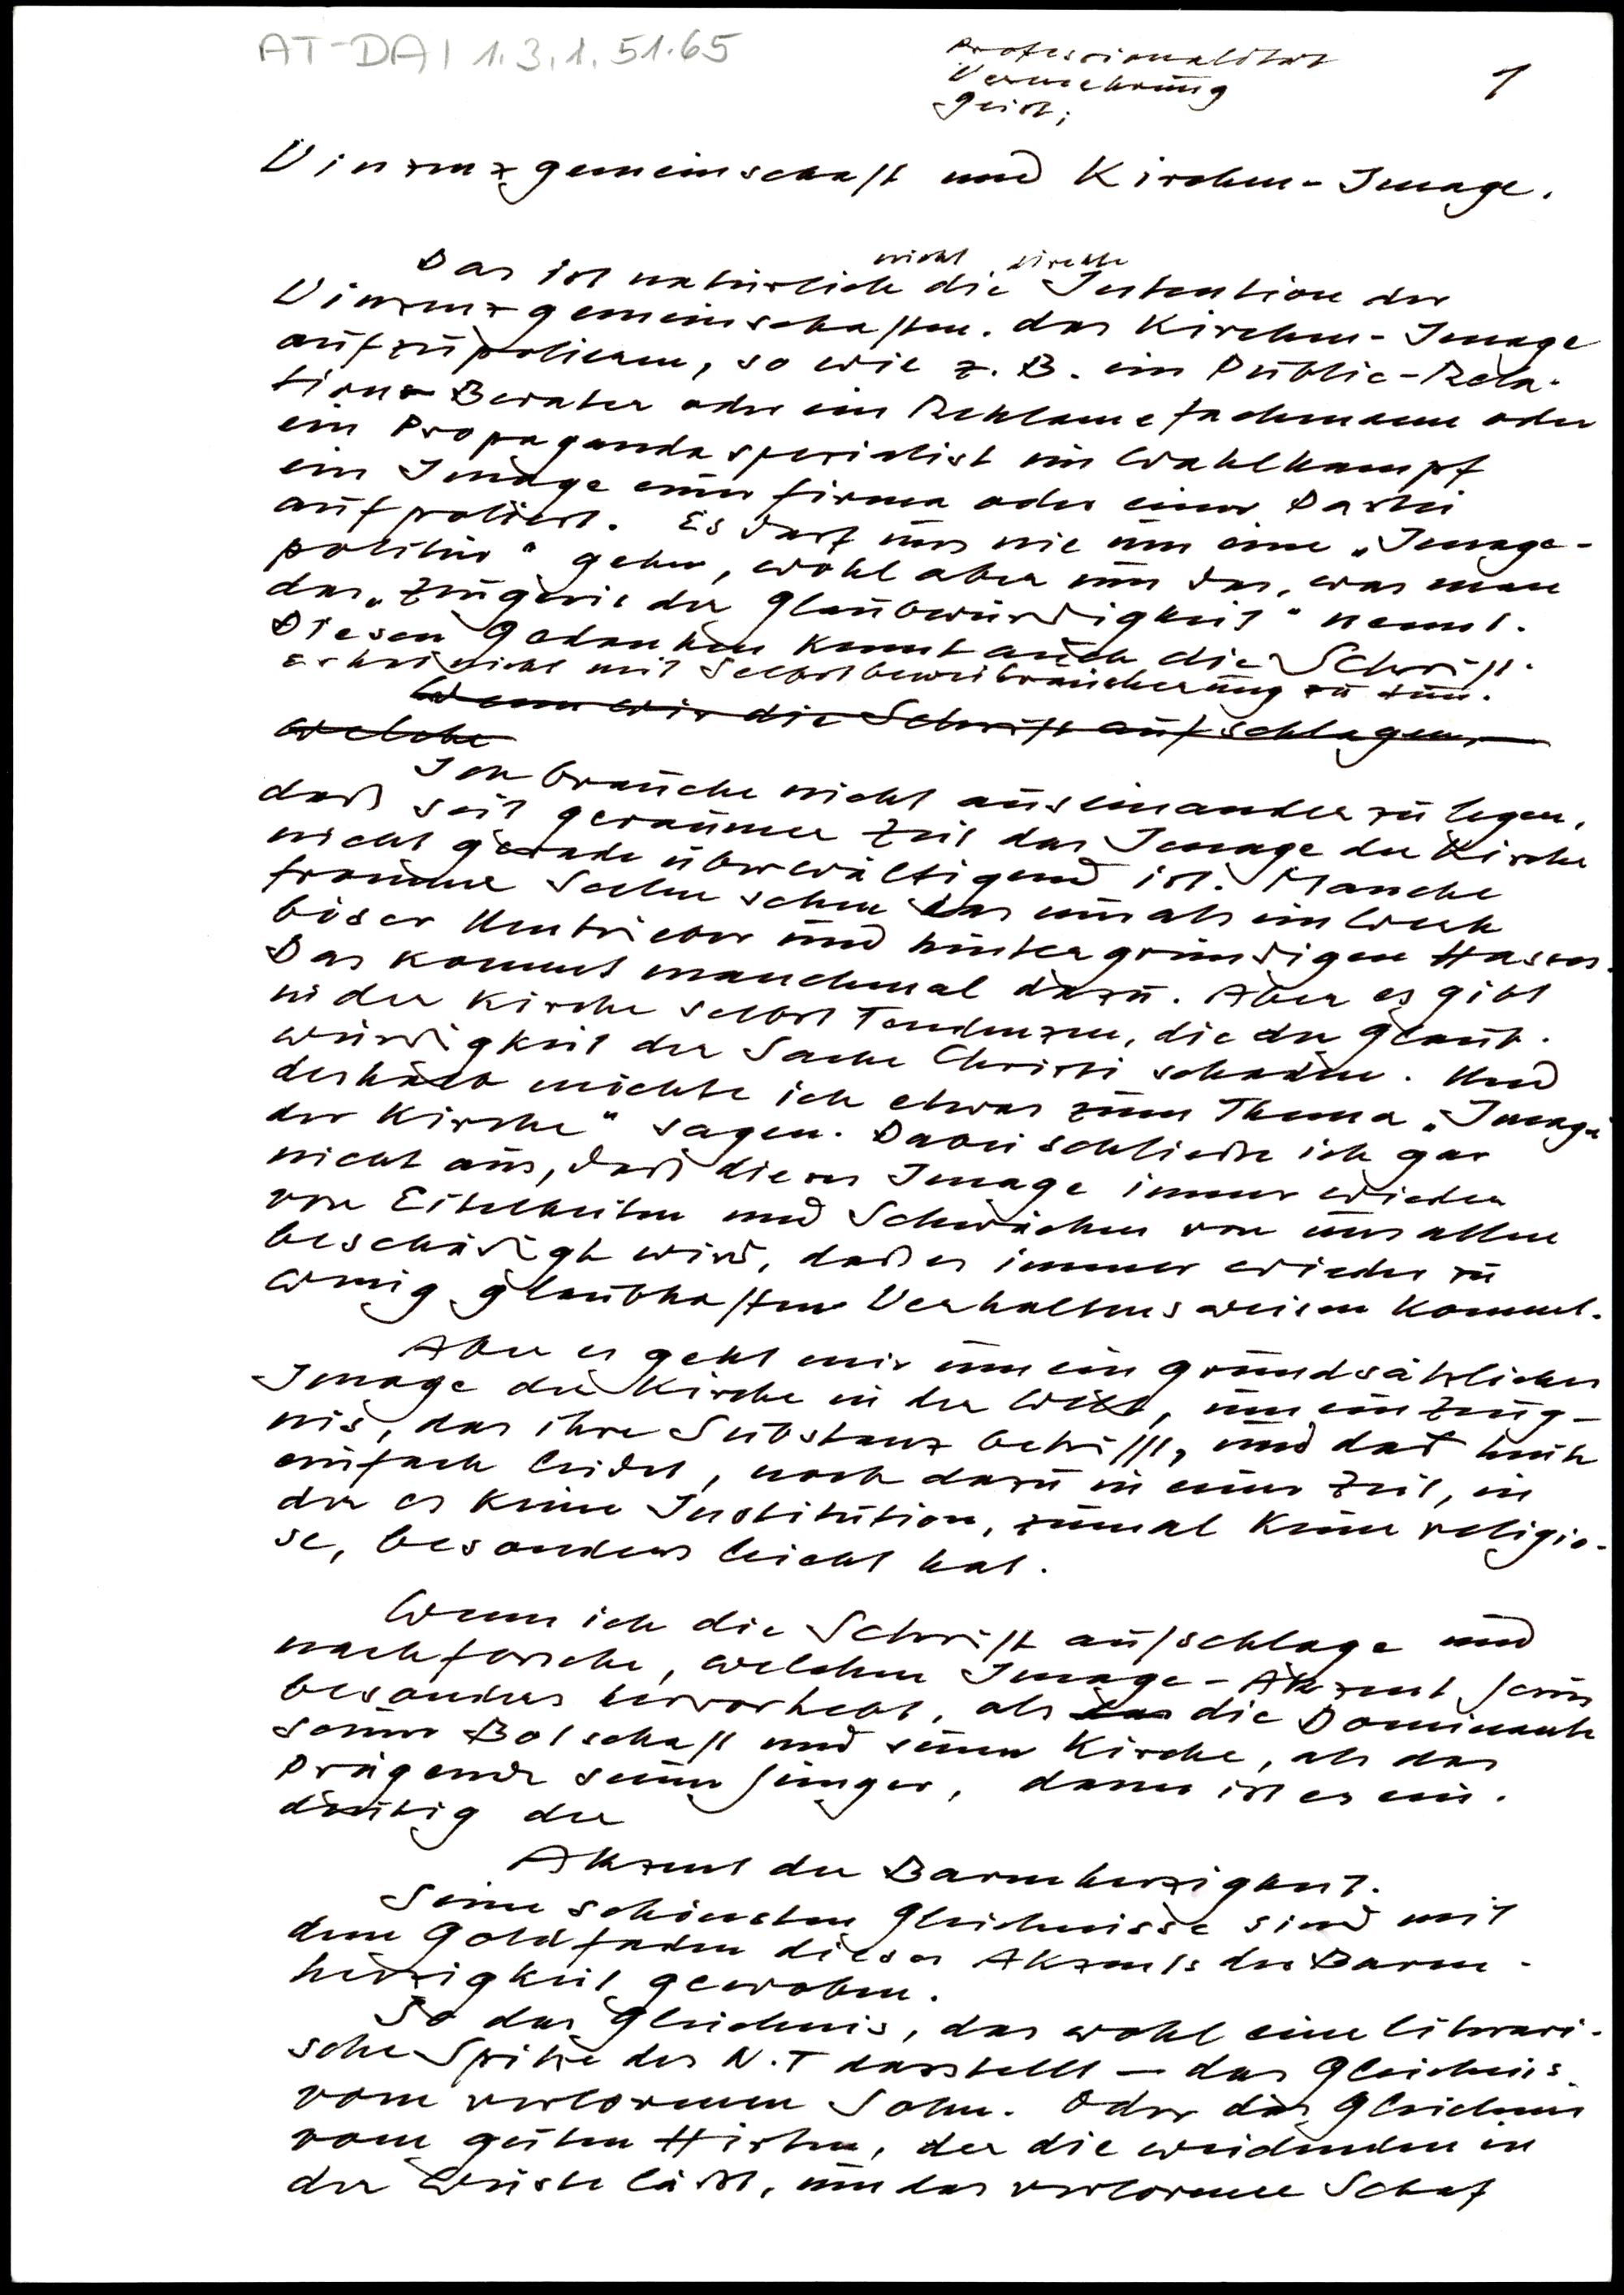 AT-DAI 1.3.1.51.65
Professionalität
Vermehrung
Geist;
1
Vinzenzgemeinschaft und Kirchen-Image.
nicht direkte
Das ist natürlich die Intention der
Vinzenzgemeinschaften. das Kirchen-Image
aufzupolieren, so wie z. B. ein Public-Rela-
tions-Berater oder ein Reklamefachmann oder
ein Propagandaspezialist im Wahlkampf
ein Image einer Firma oder einer Partei
aufpoliert. Es darf uns nie um eine „Image-
politur" gehen, wohl aber um das, was man
das „Zeugnis der Glaubwürdigkeit" nennt.
Diesen Gedanken kennt auch die Schrift.
Er hat nicht mit Selbstbeweihräucherung zu tun.
Wenn wir die Schrift aufschlagen,
welche
Ich brauche nicht auseinanderzulegen,
daß seit geraumer Zeit das Image der Kirche
nicht gerade überwältigend ist. Manche
fromme Seelen sehen das nur als ein Werk
böser Umtriebe und hintergründigen Hasses.
Das kommt manchmal dazu. Aber es gibt
in der Kirche selbst Tendenzen, die der Glaub-
würdigkeit der Sache Christi schaden. Und
deshalb möchte ich etwas zum Thema „Image
der Kirche" sagen. Dabei schließe ich gar
nicht aus, daß dieses Image immer wieder
von Eitelkeiten und Schwächen von uns allen
beschädigt wird, daß es immer wieder zu
wenig glaubhaften Verhaltensweisen kommt.
Aber es geht mir um ein grundsätzliches
Image der Kirche in der Welt, um ein Zeug-
nis, das ihre Substanz betrifft, und das heute
einfach leidet, noch dazu in einer Zeit, in
der es keine Institution, zumal keine religiö-
se, besonders leicht hat.
Wenn ich die Schrift aufschlage und
nachforsche, welchen Image-Akzent Jesus
besonders hervorhebt, als das die Dominante
seiner Botschaft und seiner Kirche, als das
Prägende seiner Jünger, dann ist es ein-
deutig der
Akzent der Barmherzigkeit.
Seine schönsten Gleichnisse sind mit
dem Goldfaden dieses Akzents der Barm-
herzigkeit gewoben.
So das Gleichnis, das wohl eine literari-
sche Spitze des N.T darstellt — das Gleichnis
vom verlorenen Sohn. Oder das Gleichnis
vom guten Hirten, der die weidenden in
der Wüste läßt, um das verlorene Schaf